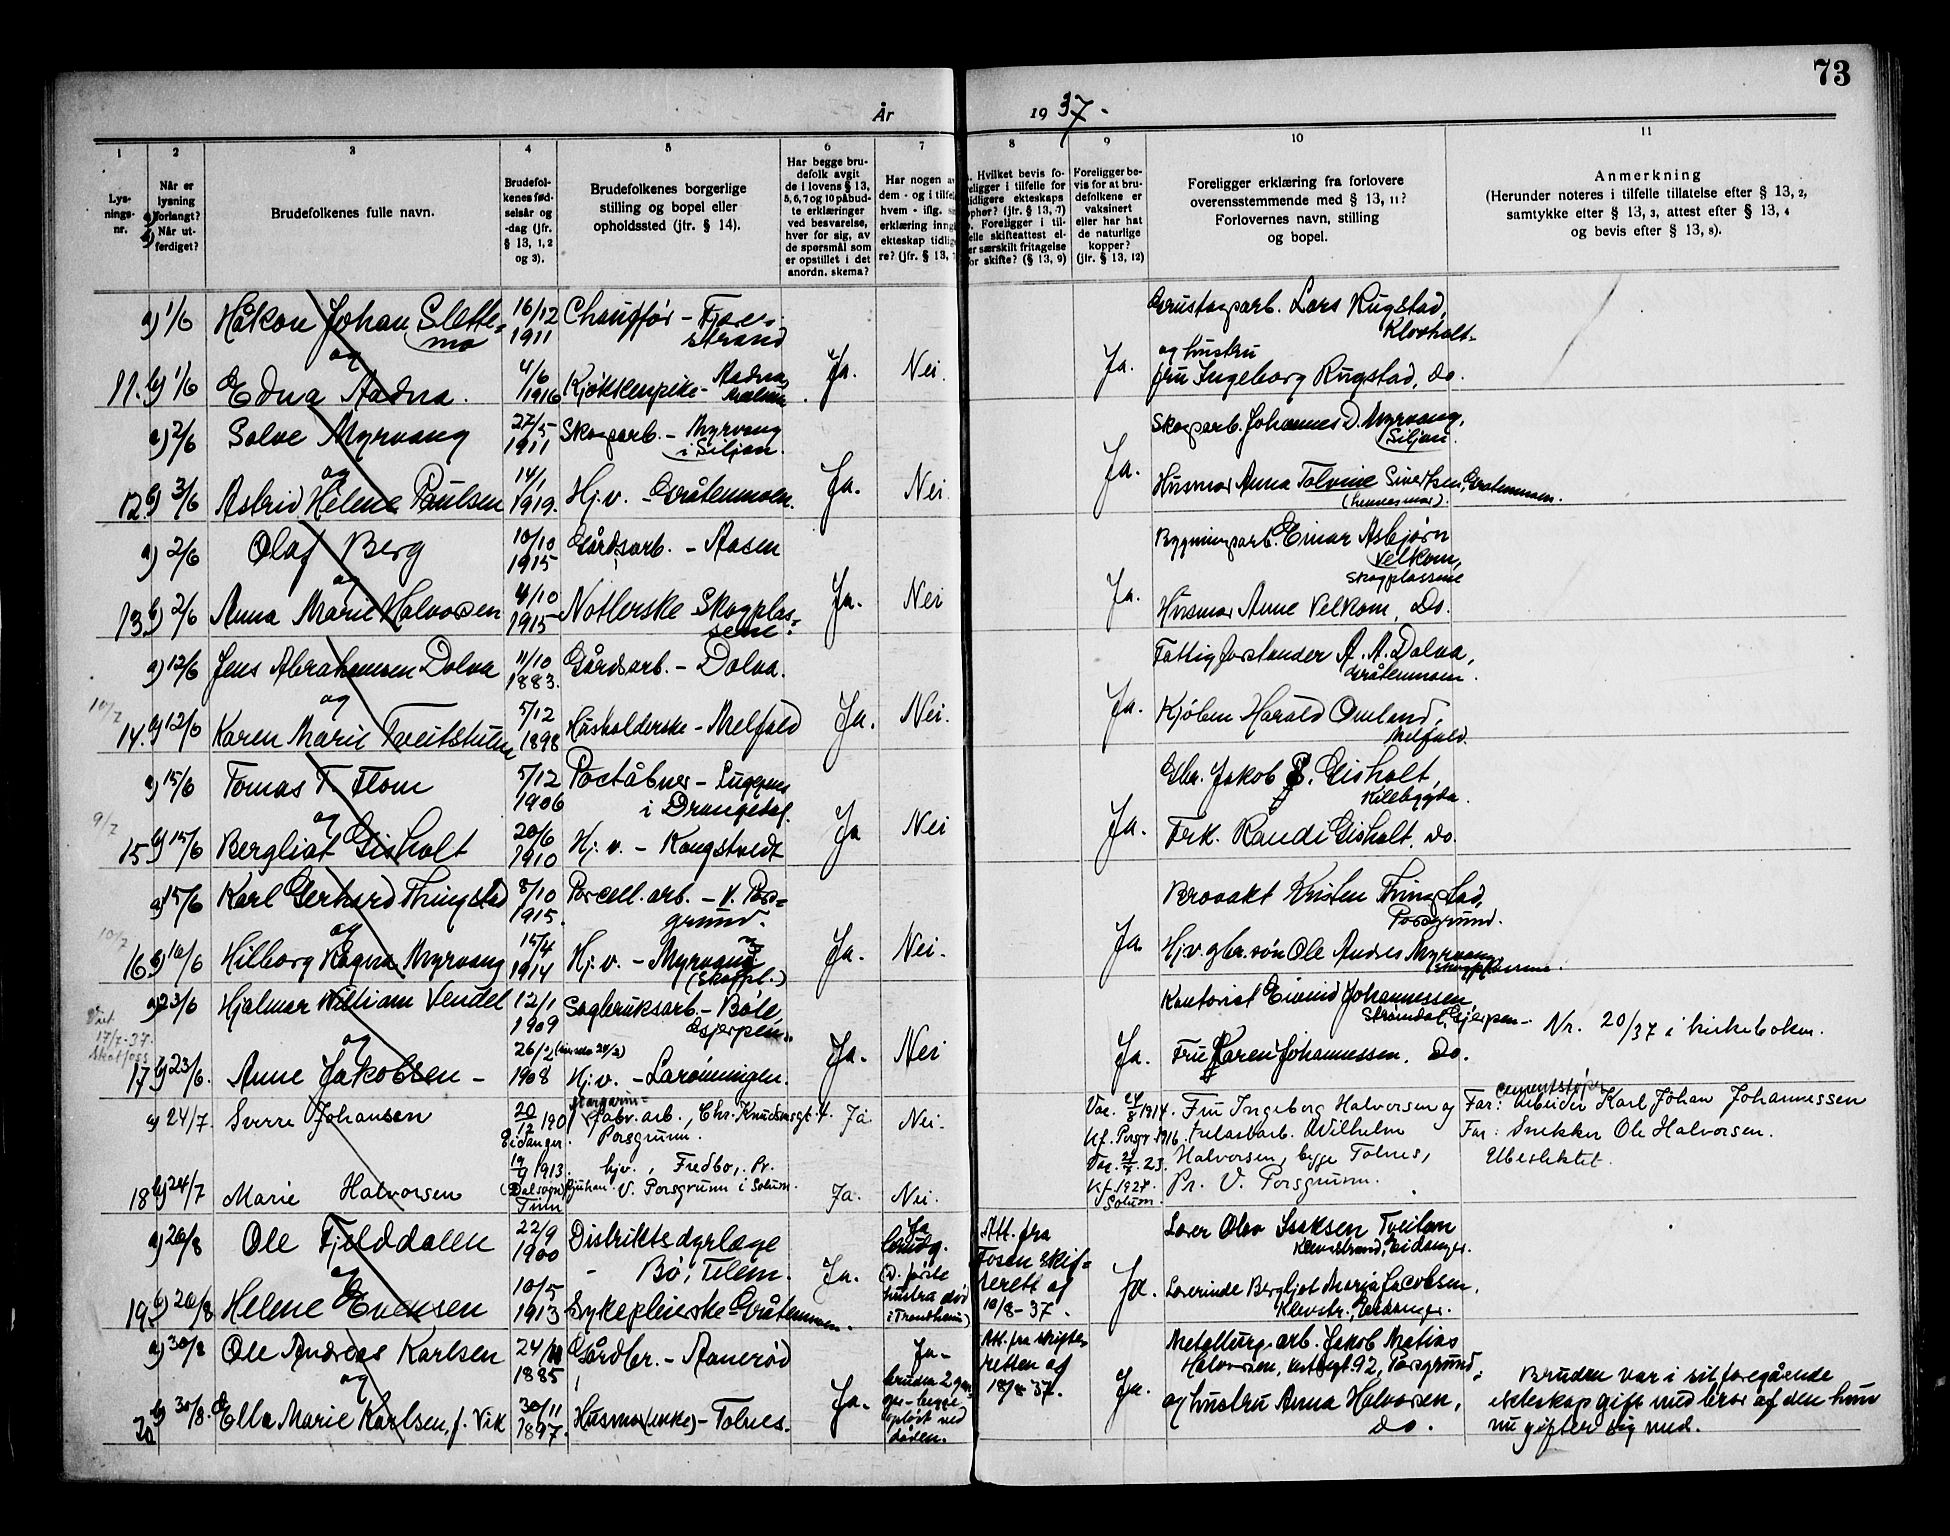 73
År 1937.
1 2 3 4 5 6 7 8 9 10 11
Lys-
nings-
nr.
Når er
lysning
a) forlangt?
b) Når ut-
ferdiget?
Brudefolkenes fulle navn.
Brudefol-
kenes fød-
selsår og
-dag (jfr.
§ 13, 1, 2
og 3).
Brudefolkenes borgerlige
stilling og bopel eller
opholdssted (jfr. § 14).
Har begge bru-
defolk avgit
de i lovens § 13,
5, 6, 7 og 10 påbud-
te erklæringer
ved besvarelse,
hver for sig, av
de spørsmål som
er opstillet i det
anordn. skema?
Har nogen a
dem - og i tilfel
hvem - iflg. s
erklæring inng
ekteskap tidlig
re? (jfr. § 13,
. Hvilket bevis fo-
religger i tilfelle for
tidligere ekteskaps
ophør? (jfr. § 13, 7)
. Foreligger i til-
felle skifteattest el-
er særskilt fritagelse
or skifte? (§ 13, 9)
Foreligger be-
vis for at bru-
defolkene er
vaksinert
eller har hat
de naturlige
kopper?
(jfr. § 13, 12)
Foreligger erklæring fra forlovere
overensstemmende med § 13, 11?
Forlovernes navn, stilling
og bopel.
Anmerkning
(Herunder noteres i tilfelle tillatelse efter § 13, 2,
samtykke efter § 13, 3, attest efter § 13, 4
og bevis efter § 13, 8).
a) 1/6 Håkon Johan Slette-
mo
16/12
1911
Chauffør - Fjære-
strand
Ja. Nei. Ja.
Lars Rugstad,
Klovholt.
og
11. b) 1/6 Edna Aadna.
4/6
1916
Kjøkkenpike - Aadna,
og hustru
fru Ingeborg Rugstad, do.
a) 2/6 Solve Myrvang
27/5
1911
Skogsarb. - Myrvang
i Siljan.
Ja. Nei Ja.
Skogsarb. Johannes D. Myrvang,
Siljan.
og
12. b) 3/6 Astrid Helene Paulsen
14/1
1919.
Hj.v. - Gråtenmoen.
Husmor Anna Tolvine Sivertsen, Gråtenmoen.
(hennes mor).
a) 2/6 Olaf Berg
10/10
1915
Gårdsarb. - Aasen
Ja. Nei Ja.
Bygningsarb. Einar Asbjørn
Velkom,
Skogplassene
og
13. b) 2/6 Anna Marie Halvorsen
4/10
1915
Skogplas-
sene.
Husmor Anne Velkom, do.
a) 12/6 Jens Abrahamsen Dolva
11/10
1883.
Gårdsarb. - Dolva.
Ja. Nei. Ja.
Fattigforstander A. A. Dolva,
Gråtenmoen.
og
10/7
14. b) 12/6 Karen Marie Tveitstulen
5/12
1898
Husholderske - Melfald
Kjøbm Harald Omland,
Melfald.
a) 15/6 Tomas T. Flom
5/12
1906
Poståbner -
i Drangedal.
Ja Nei Ja.
Gbr. Jakob P. Gisholt,
Kilebygda.
og
9/7
15 b) 15/6 Bergliot Gisholt
20/6
1910
Hj. v. - Kongstvedt
Frk. Randi Gisholt, do.
a) 15/6 Karl Gerhard Thingstad
8/10
1915.
Porcell. arb. - V. Pors-
grund.
Ja. Nei. Ja.
Brovakt Kristen Thingstad,
Porsgrund.
og
10/7
16 b) 16/6 Hilborg Ragna Myrvang
15/4
1914
Hj. v. - Myrvang
(Skogpl.)
Hj.v. gbr.søn Ole Anders Myrvang,
Skogplassene.
a) 23/6 Hjalmar William Vendel
12/1
1909
Sagbruksarb. - Bøle,
Gjerpen.
Ja. Nei Ja.
Kontorist Eivind Johannessen
Strømdal, Gjerpen -
Nr. 20/37 i kirkeboken.
og
17/7-37.
Skotfoss
17 b) 23/6. Anne Jakobsen -
26/2
1908
Hj.v. - Larønningen.
Fru Karen Johannessen, do.
a) 24/7. Sverre Johansen
20/12 190
Eidanger.
Margarin-
fabr. arb., Chr. Knudsensgt. 4.
Porsgrunn.
Ja Nei.
Vac. 1914.
Kf. Porsgr. 1916.
Fru Ingeborg Halvorsen og
Wilhelm
cementstøper
Far: Arbeider Karl Johan Johannessen
Far: Snekker Ole Halvorsen.
Ubeslektet.
18 b) 24/7 Marie Halvorsen
19/9 1913.
(Dal sogn)
Tinn
hjv., Fredbo, Pr.
Rjukan. V. Porsgrunn i Solum.
Ja. Nei.
Vac. 23.
Kf. 1927.
Solum.
Halvorsen, begge Tolnes,
Pr. V. Porsgrunn.
a) 20/8 Ole Fjelddalen
22/9
1900
Distriktsdyrlæge
- Bø, Telem.
Ja.
Ja
brudg.
(D. første
hustru død
i Trondheim)
Att. fra
Fosen skif-
terett af
10/8-37.
Ja.
Lærer Olav Isaksen Tveitan
Klevstrand, Eidanger.
og
19. b) 20/8 Helene Evensen
10/5
1913
Sykepleierske - Gråtenmoen.
Lærerinde Bergljot Marja Jacobsen,
Klevstr., Eidanger.
a) 30/8 Ole Andreas Karlsen
24/11
1885
Gårdbr. - Aanerød
Ja.
Ja -
bruden 2 gan-
ger - begge
opløst ved
døden.
Att. fra skifte-
retten af
18/8 37.
Ja.
Metallurg. arb. Jakob Matias
Halvorsen, 92, Porsgrund,
og
20 b) 30/8. Ella Marie Karlsen, f. Vik
30/11
1897.
Husmor (enke) - Tolnes.
og hustru Anna Halvorsen,
do.
Bruden var i sit foregående
ekteskap gift med bror af den hun
nu gifter sig med.